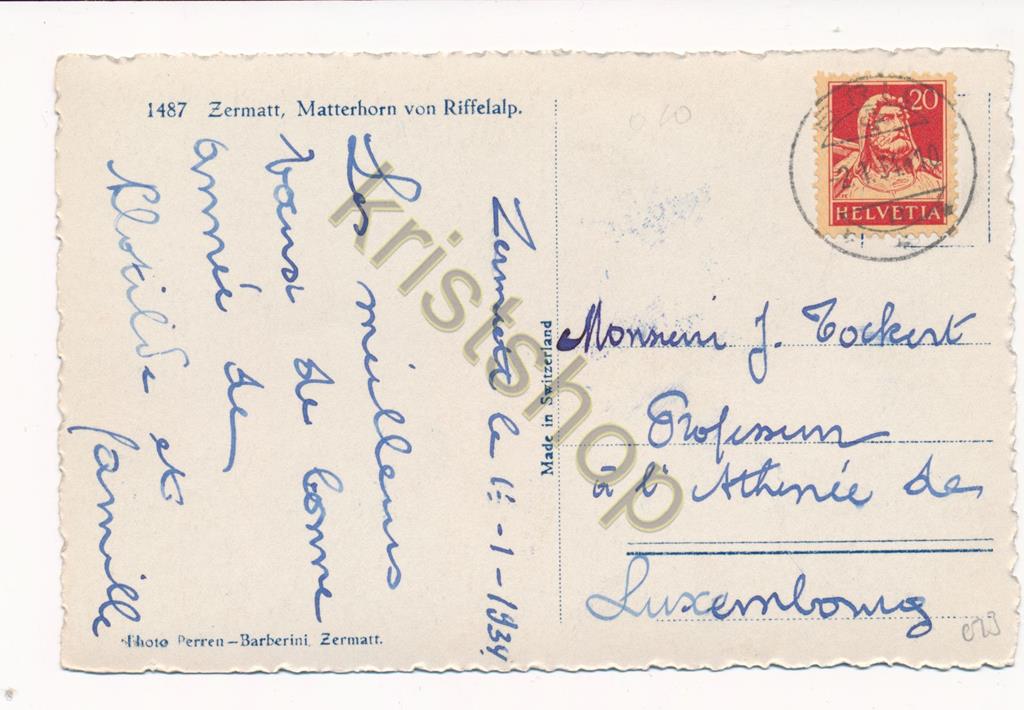 1487 Zermatt, Matterhorn von Riffelalp.
Zermatt le 1er-1-1934
Les meilleurs
vœux de bonne
année de
Clotilde et
famille
Photo Perren-Barberini, Zermatt.
Made in Switzerland
20
HELVETIA
-2.1.34.-10
Monsieur J. Tockert
Professeur
à l'Athénée de
Luxembourg
Kristshop